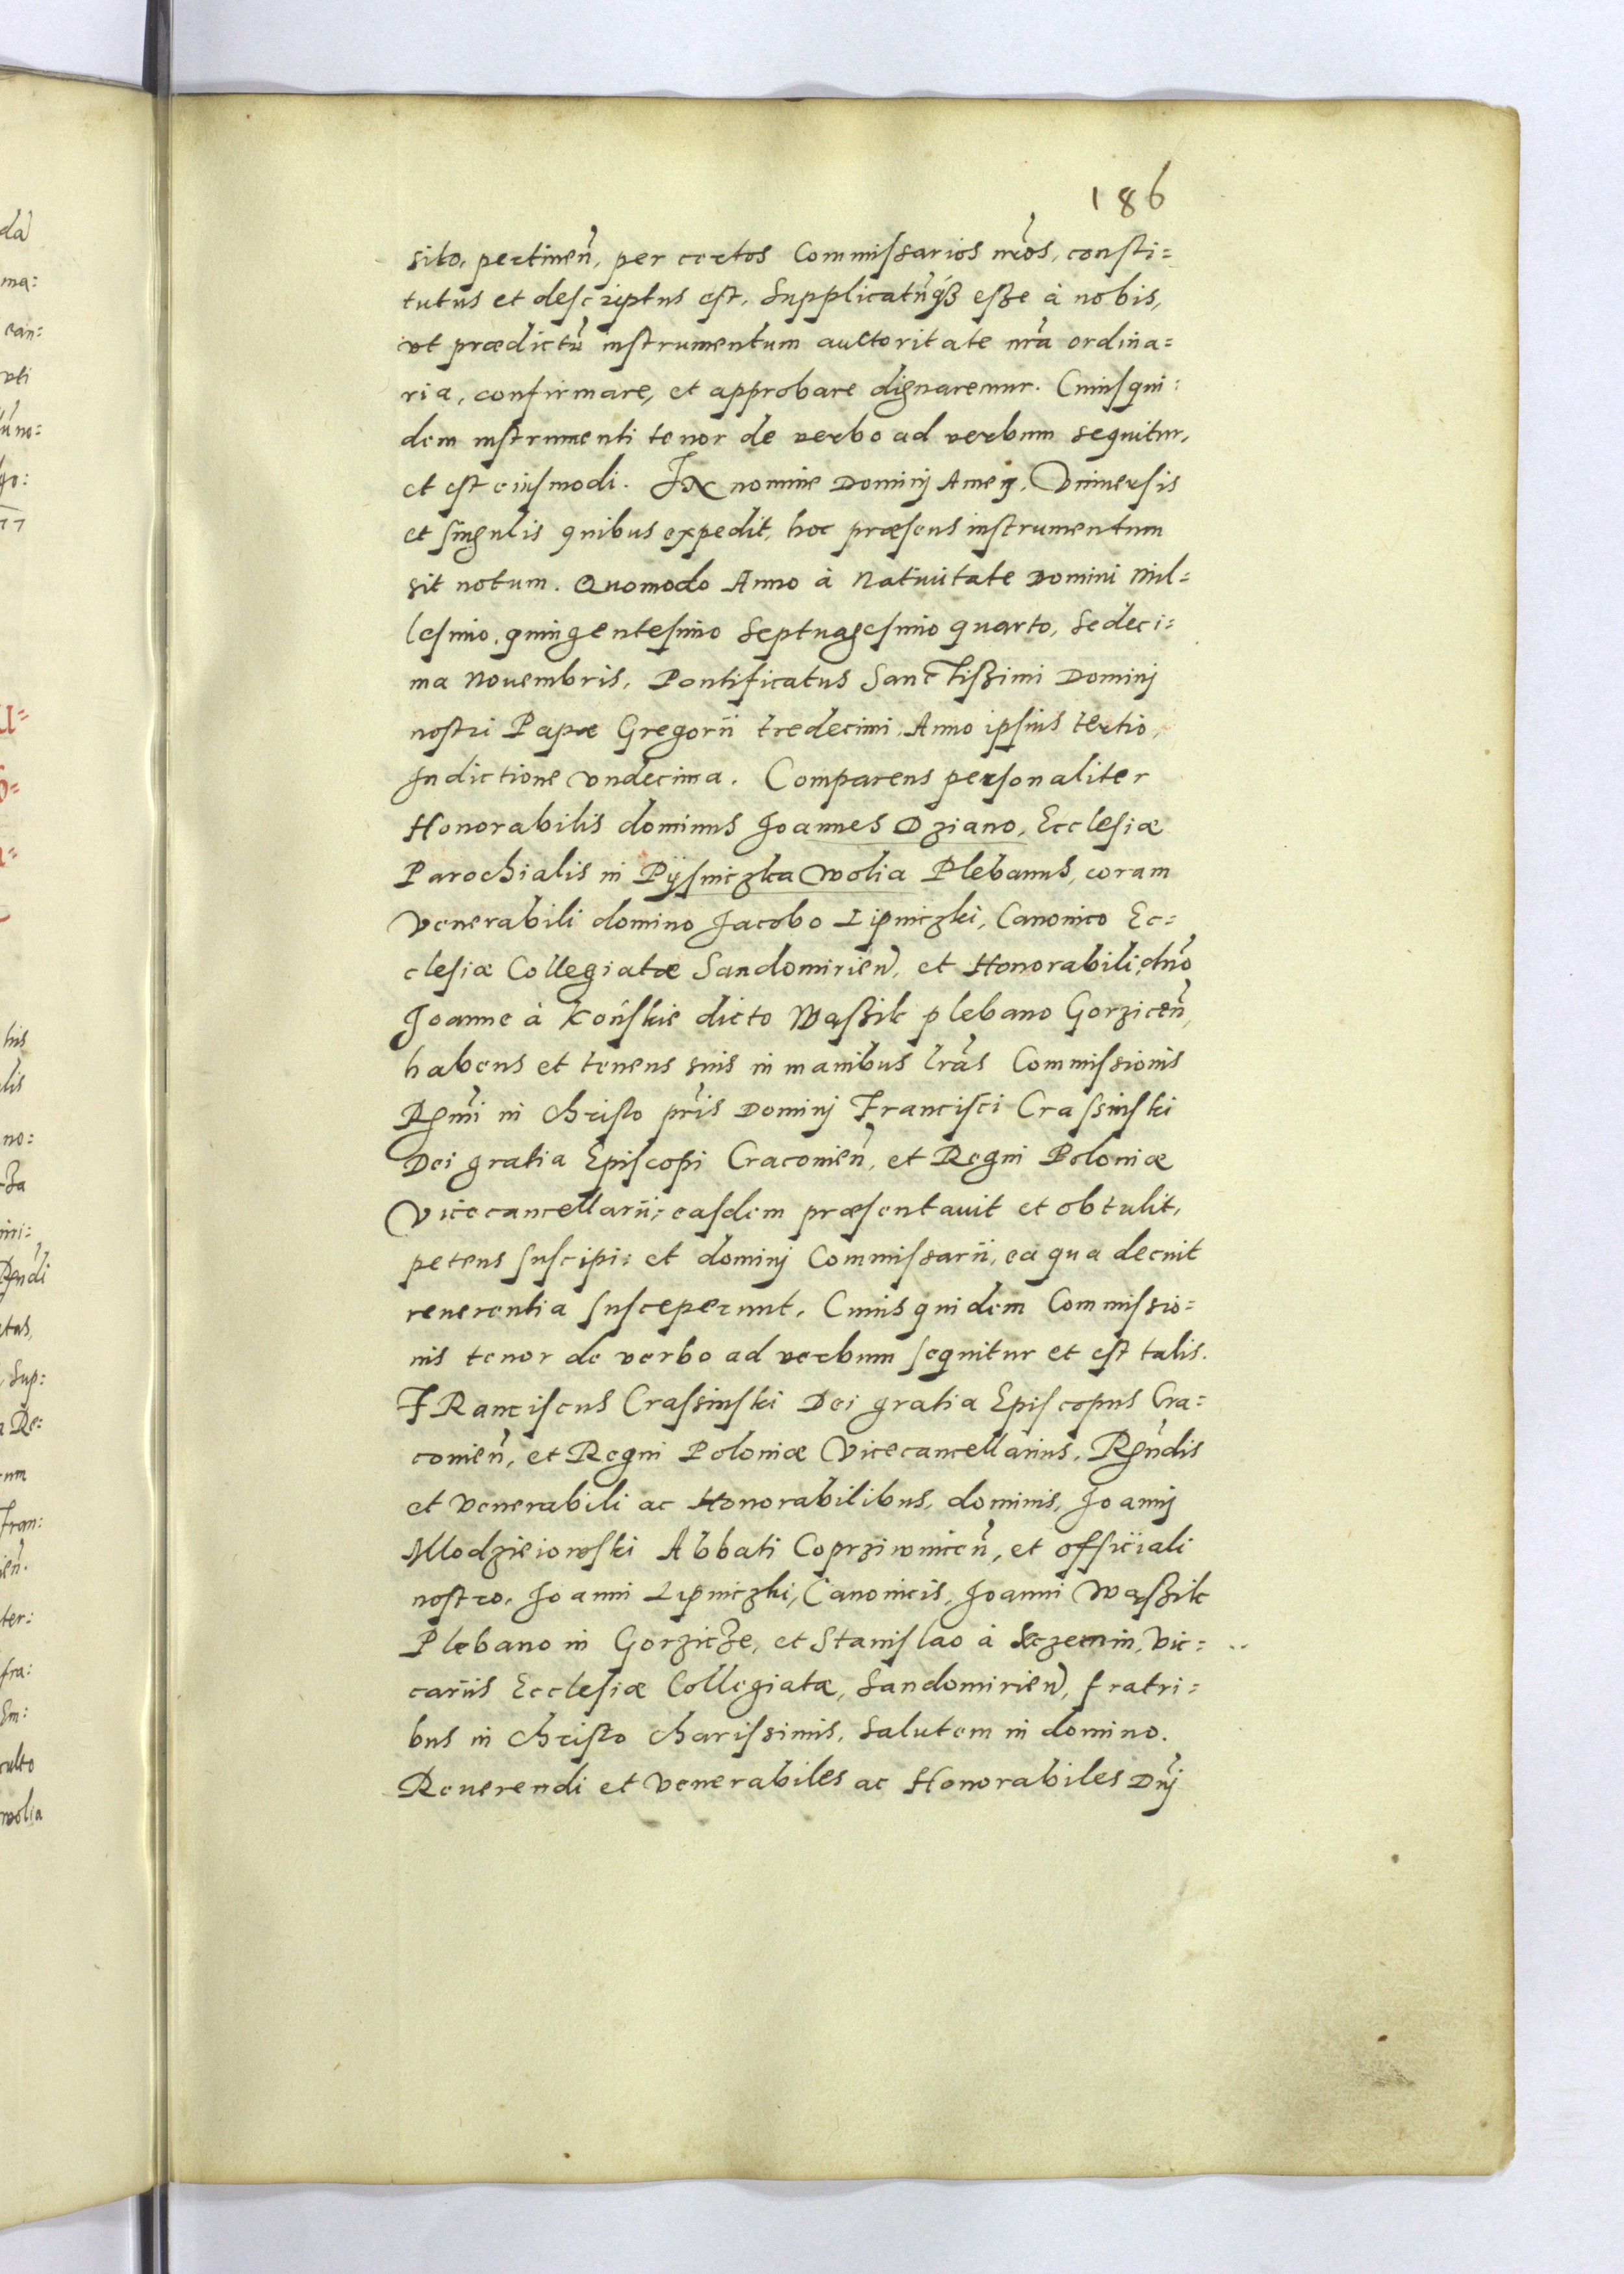 186
sito, pertineñ, per certos Commissarios nr̃os, consti=
tutus et descriptus est. Supplicatũq́ꝫ esse à nobis,
vt prædictũ instrumentum auctoritate nr̃a ordina=
ria, confirmare, et approbare dignaremur. Cuiusqui:
dem instrumenti tenor de verbo ad verbum sequitur,
et est eiusmodi. IN nomine Dominj Amen. Vniuersis
et singulis quibus expedit, hoc præsens instrumentum
sit notum. Quomodo Anno à Natiuitate Domini mil=
lesimo, quingentesimo Septuagesimo quarto, Sedeci=
ma Nouembris, Pontificatus Sanctissimi Dominj
nostri Papæ Gregorii tredecimi, Anno ipsius tertio,
Indictione vndecima. Comparens personaliter
Honorabilis dominus Joannes Dziano, Ecclesiæ
Parochialis in Pÿsniczka Wolia Plebanus, coram
Venerabili domino Jacobo Lipniczki, Canonico Ec=
clesiæ Collegiatæ Sandomirieñ, et Honorabili, dño
Joanne à Końskie dicto Waszik plebano Gorziceñ,
habens et tenens suis in manibus lr̃as Commissionis
Rgmi in Christo pr̃is Dominj Francisci Crassinski
Dei gratia Episcopi Cracouieñ, et Regni Poloniæ
Vicecancellarii, easdem præsentauit et obtulit,
petens suscipi: et dominj Commissarii, ea qua decuit
reuerentia susceperunt. Cuius quidem Commissio=
nis tenor de verbo ad verbum sequitur et est talis.
FRanciscus Crassinski Dei gratia Episcopus Cra=
couieñ, et Regni Poloniæ Vicecancellarius, Rgñdis
et Venerabili ac Honorabilibus, dominis, Joannj
Mlodzieiowski Abbati Coprziwniceñ, et officiali
nostro, Joanni Lipniczki, Canonicis, Joanni Waszik
Plebano in Gorzicze, et Stanislao à vic= ..
cariis Ecclesiæ Collegiatæ, Sandomirieñ, fratri=
bus in Christo charissimis, Salutem in domino.
Reuerendi et Venerabiles ac Honorabiles Dñj